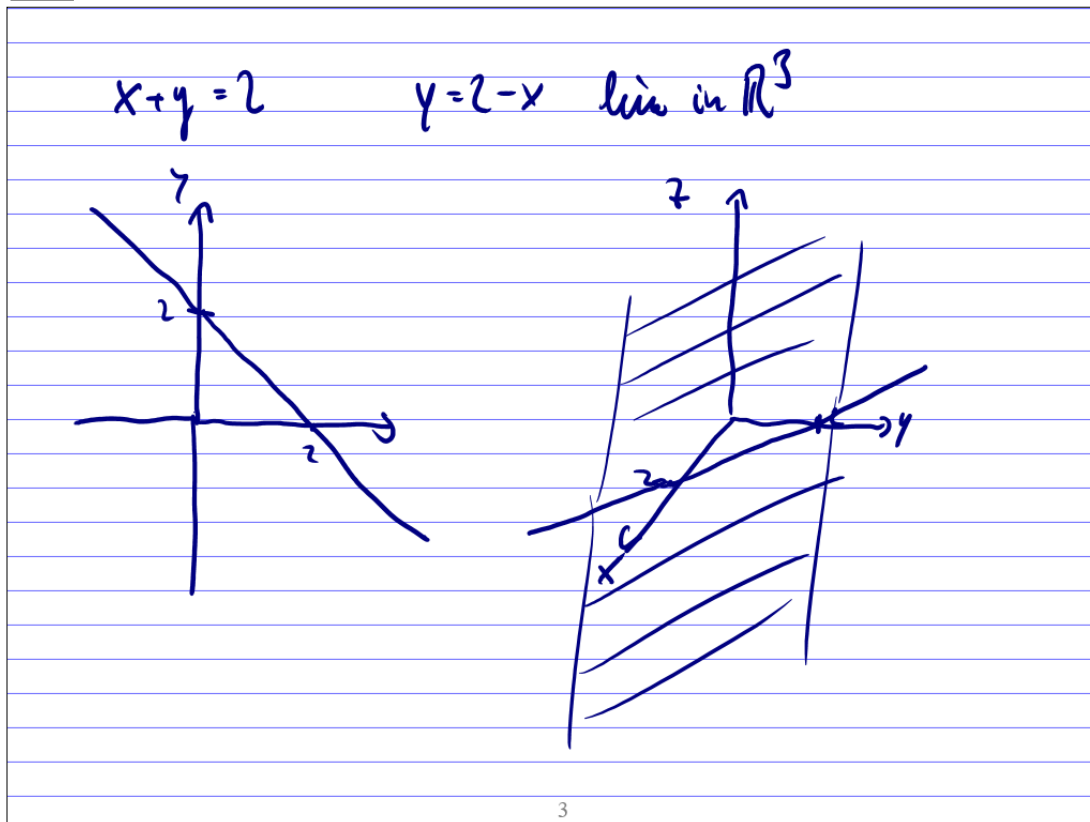 x+y=2 y=2-x line in ℝ³
y z
2
2 y
2
x
3